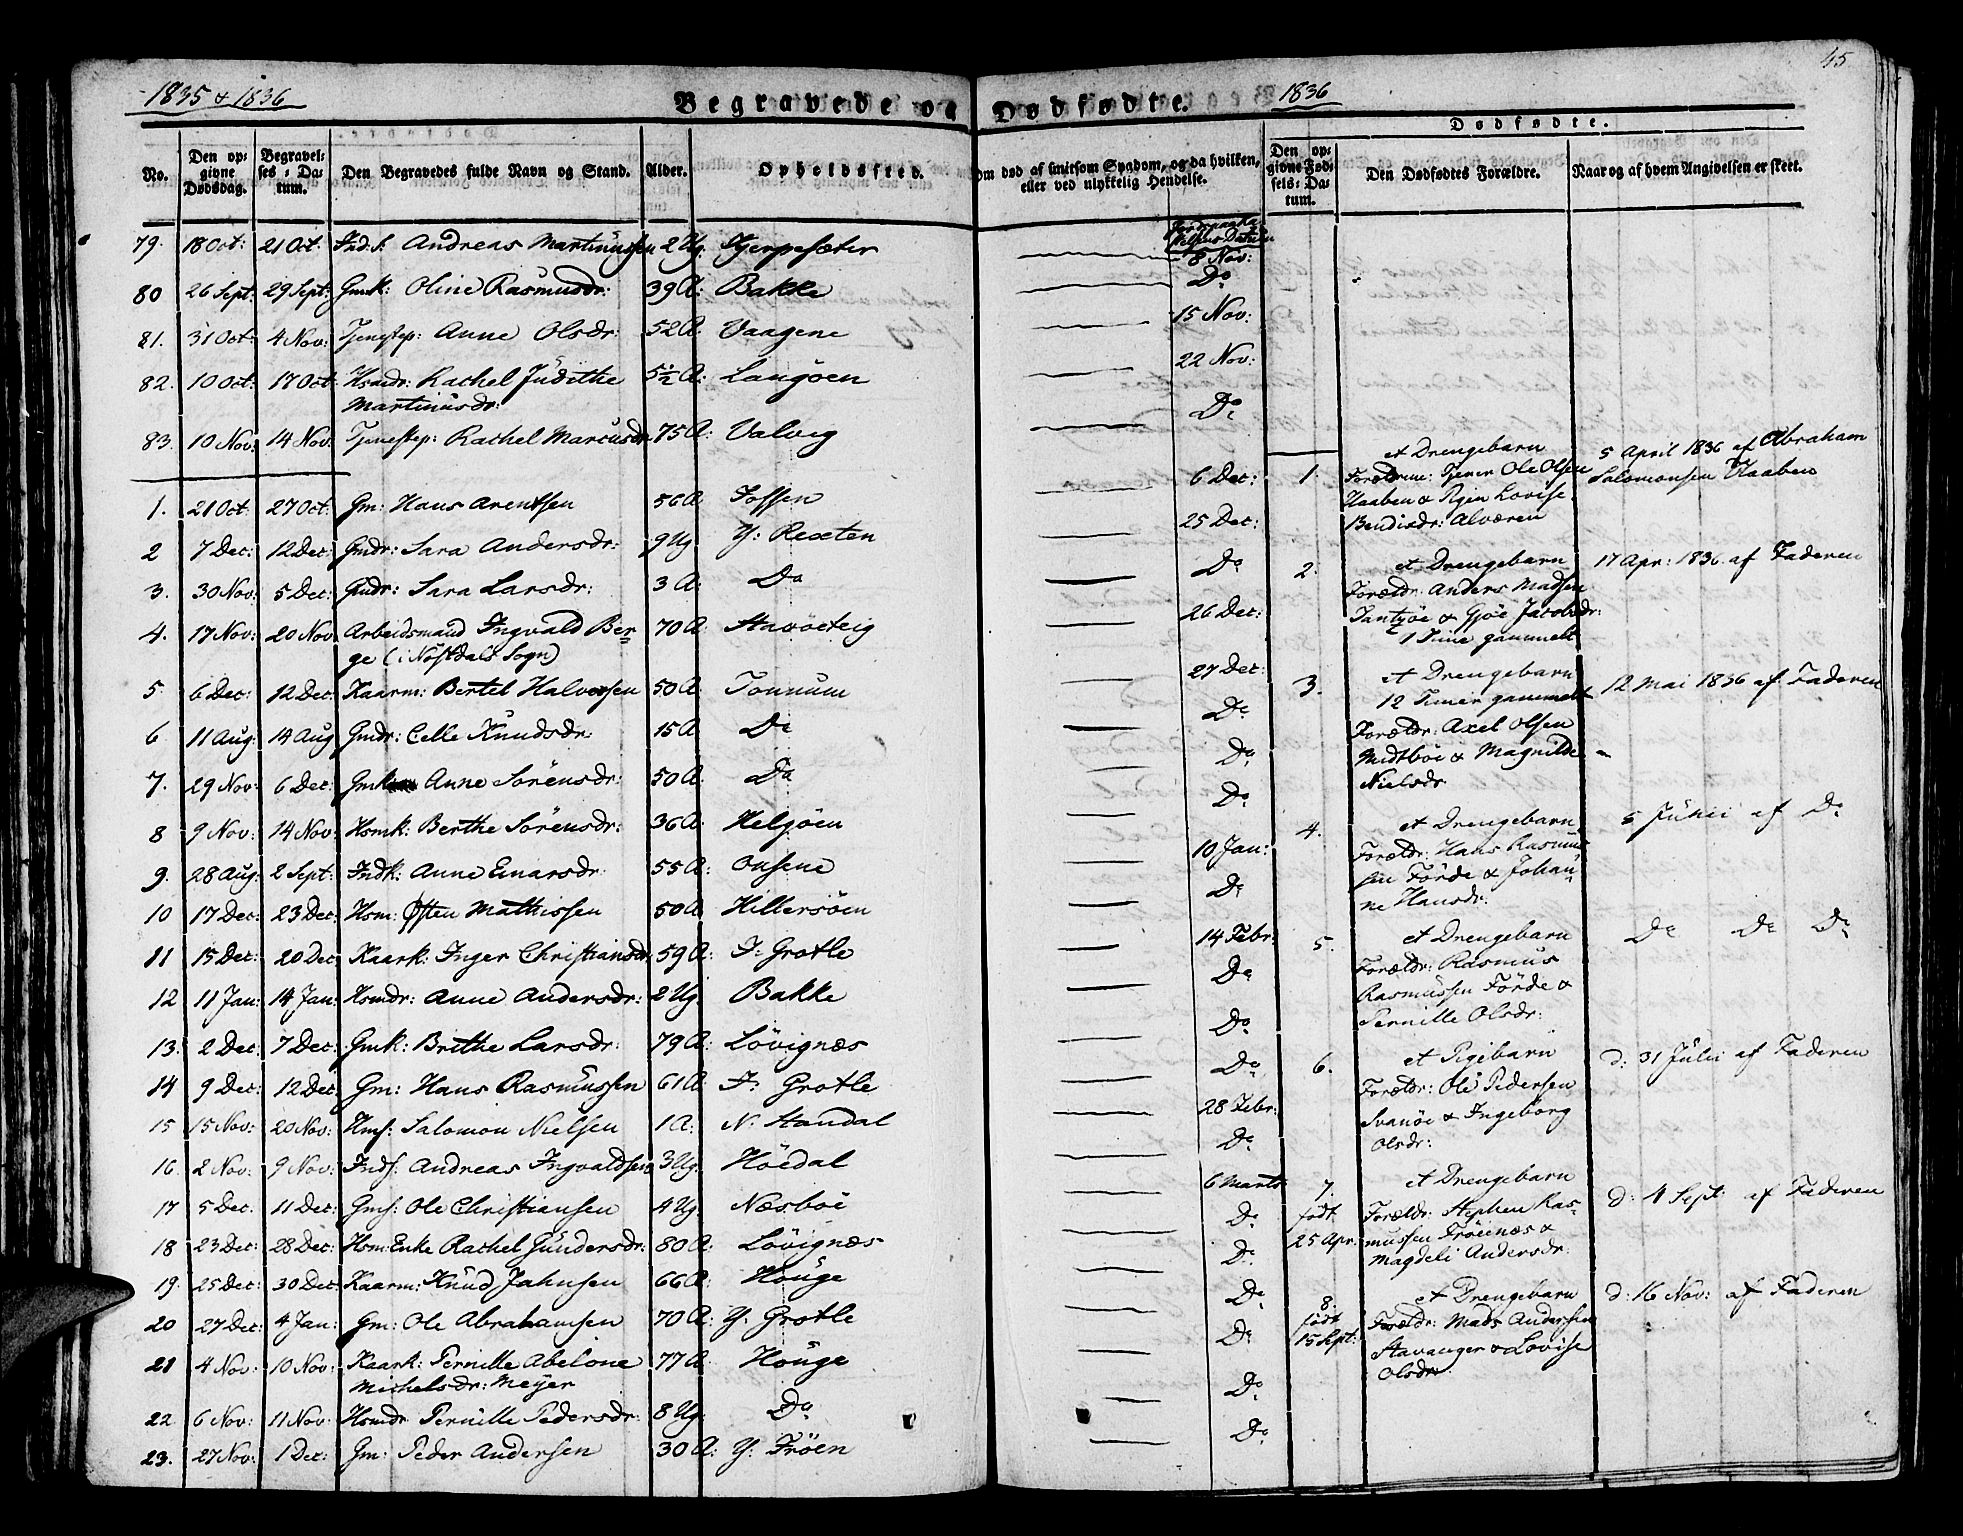 1835 & 1836
Begravede og Dødfødte.
1836
45
No.
Den opgivne Dødsdag.
Begravelses-Datum.
Den Begravedes fulde Navn og Stand.
Alder.
Opholdssted.
Om død af smitsom Sygdom, og da hvilken, eller ved ulykkelig Hendelse.
Dødfødte.
Den opgivne Fødselsdatum.
Den Dødfødtes Forældre.
Naar og af hvem Angivelsen er skeet.
79. 18 Oct: 21 Oct Inds: Andreas Martinussen 2 Ug. Tjerpesæter 8 Nov:
80 26 Sept: 29 Sept: Gmk: Oline Rasmusdr: 39 A: Bakke Do
81. 31 Oct: 4 Nov: Tjenestep: Anne Olsdr: 52 A. Vaagene 15 Nov:
82. 10 Oct: 17 Oct Hsmdr: Rachel Judithe 5½ A: Langöen 22 Nov:
Martinusdr:
83. 10 Nov: 14 Nov. Tjenestep: Rachel Marcusdr: 75 A: Valvig Do
1. 21 Oct: 27 Oct. Gm: Hans Arentsen 56 A. 6 Dec:
2 7 Dec: 12 Dec: Gmdr: Sara Andersdr: 9 Ug Y: Rexten 25 Dec:
3. 30 Nov: 5 Dec: Gmdr: Sara Larsdr: 3 A: Do Do
4. 17 Nov: 20 Nov Arbeidsmand Ingvald Ber= 70 A: 26 Dec:
ge (i Nöstdals Sogn)
5. 6 Dec: 12 Dec Kaarm: Bertel Halvorsen 50 A. Tonnum 27 Dec:
6 11 Aug: 14 Aug Gmdr: Celle Knudsdr: 15 A Do Do
7. 29 Nov: 6 Dec: Gmk: Anne Sörensdr: 50 A. Do Do
8 9 Nov: 14 Nov Hsmk: Berthe Sörensdr: 36 A: Helgöen Do
9. 28 Aug: 2 Sept: Indk: Anne Einarsdr: 55 A: Onsene 10 Jan:
10 17 Dec: 23 Dec: Hsm: Østen Mathissen 50 A Hillersöen Do
11 15 Dec: 20 Dec Kaark: Inger Christiansdr: 59 A: I: Grotle 14 Febr:
12 11 Jan: 14 Jan: Hsmdr: Anne Andersdr: 2 Ug. Bakke Do
13. 2 Dec: 7 Dec: Gmk: Brithe Larsdr: 79 A: Lövignæs Do
14 9 Dec: 12 Dec: Gm: Hans Rasmussen 61 A: I: Grotle Do
15 15 Nov: 20 Nov: Hms: Salomon Nielsen 1 A: N. Standal 28 Febr:
16. 2 Nov: 9 Nov: Inds: Andreas Ingvaldsen 3 Ug. Höedal Do
17 5 Dec: 11 Dec: Gms: Ole Christiansen 4 Ug. Næsböe 6 Marts
18 23 Dec: 28 Dec: Hsm: Enke Rachel Gundersdr: 80 A: Lövignæs Do
19. 25 Dec: 30 Dec Kaarm: Knud Jahnsen 66 A: Houge Do
20 27 Dec: 4 Jan: Gm: Ole Abrahamsen 70 A: Y. Grotle Do
21 4 Nov: 10 Nov: Kaark: Pernille Abelone 77 A: Houge Do
Michelsdr: Meyer
22. 6 Nov: 11 Nov: Hsmdr Pernille Pedersdr: 8 Ug: Do Do
23. 27 Nov: 1 Dec: Gm: Peder Andersen 30 A: Y. Fröen Do
1. et Drengebarn
Forældrene: Tjener Ole Olsen
Haaben & Pigen Lovise
Bendixdr: Alværen
5 April 1836 af Abraham
Salomonsen Haaben
2. et Drengebarn
Forældr: Anders Madsen
& Gjöe Jacobsdr:
1 Time gammelt
17 Apr: 1836 af Faderen
3. et Drengebarn
12 Timer gammelt
Forældr: Axel Olsen
Midtböe & Magnilde
Nielsdr
12 Mai 1836 af Faderen
4. et Drengebarn
Forældr: Hans Rasmus
sen Förde & Johan=
ne Hansdr:
5 Julii af Do
5. et Drengebarn
Forældr: Rasmus
Rasmussen Förde &
Pernille Olsdr:
Do Do Do
6. et Pigebarn
Forældr: Ole Pedersen
Svanöe & Ingeborg
Olsdr:
d: 31 Julii af Faderen
7. født 25 Apr: et Drengebarn
Forældr: Stephen Ras=
mussen Fröienæs &
Magdeli Andersdr:
d: 4 Sept: af Faderen
8. født 15 Sept: et Drengebarn
Forældr: Mads Andersen
Stavanger & Lovise
Olsdr
d: 16 Nov: af Faderen